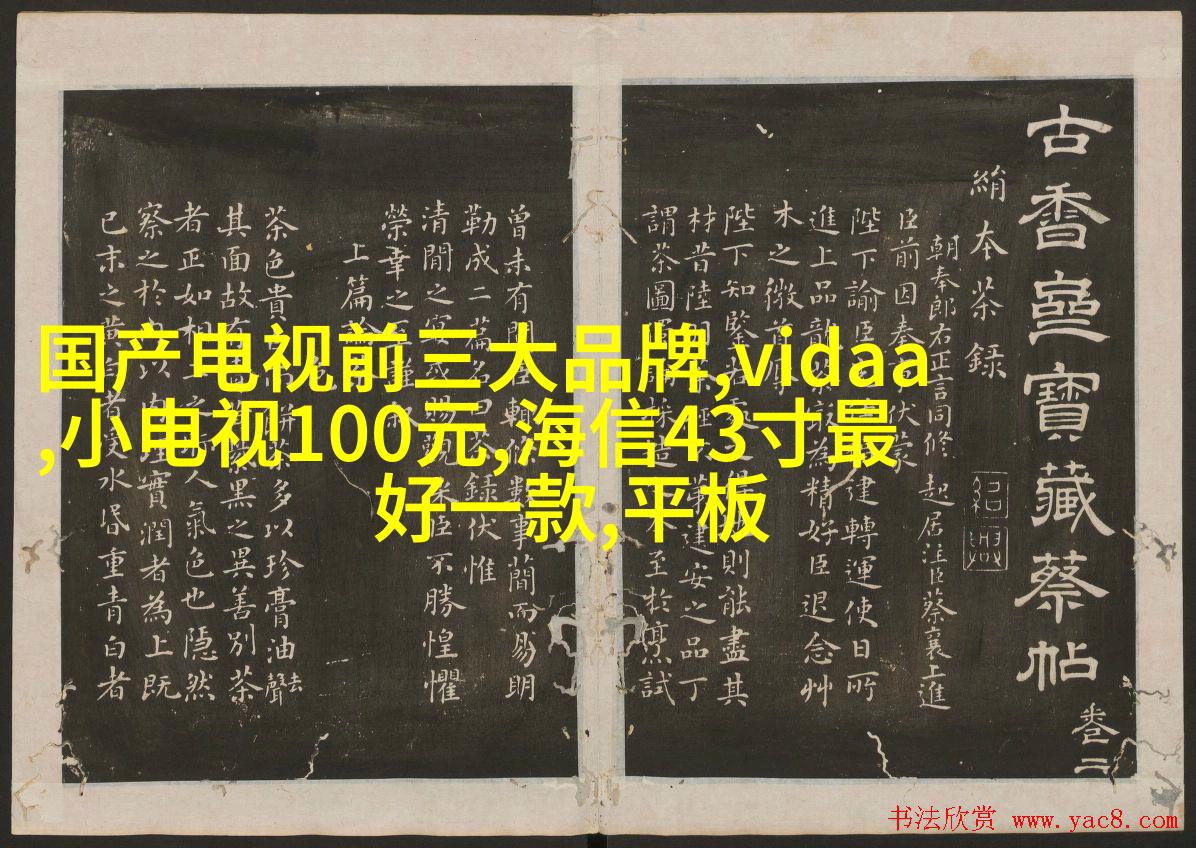 国产电视前三大品牌,vidaa
,小电视100元,海信43寸最
好一款,平板
古香齋寶藏蔡帖
卷二
絹本茶錄
朝奉郎右正言同修起居注臣蔡襄上進
臣前因奏伏蒙
陛下諭臣建轉運使日所
進上品龍茶為精好臣退念艸
木之微首辱
陛下知鑒若處之得則能盡其
材昔陸羽經第建安之品丁
謂茶圖採造之至於烹試
曾未有聞臣輒條數事簡而易明
勒成二篇名曰茶錄伏惟
清閒之宴或賜觀採臣不勝惶懼
榮幸之至謹叙
上篇論茶
色
茶色貴白餅茶多以珍膏油去聲
其面故有黑之異善別茶
者正如相工之人氣色也隱然
察之於內以肉理實潤者為上既
已末之黃者受水昏重青白者
书法欣赏 www.yac8.com